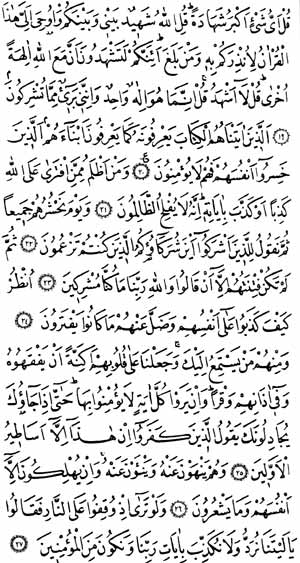 قُلْ أَيُّ شَيْءٍ أَكْبَرُ شَهَادَةً قُلِ اللَّهُ شَهِيدٌ بَيْنِي وَبَيْنَكُمْ وَأُوحِيَ إِلَيَّ هَٰذَا
الْقُرْآنُ لِأُنذِرَكُم بِهِ وَمَن بَلَغَ أَئِنَّكُمْ لَتَشْهَدُونَ أَنَّ مَعَ اللَّهِ آلِهَةً
أُخْرَىٰ قُل لَّا أَشْهَدُ قُلْ إِنَّمَا هُوَ إِلَٰهٌ وَاحِدٌ وَإِنَّنِي بَرِيءٌ مِّمَّا تُشْرِكُونَ
﴿١٩﴾ الَّذِينَ آتَيْنَاهُمُ الْكِتَابَ يَعْرِفُونَهُ كَمَا يَعْرِفُونَ أَبْنَاءَهُمُ الَّذِينَ
خَسِرُوا أَنفُسَهُمْ فَهُمْ لَا يُؤْمِنُونَ ﴿٢٠﴾ وَمَنْ أَظْلَمُ مِمَّنِ افْتَرَىٰ عَلَى اللَّهِ
كَذِبًا أَوْ كَذَّبَ بِآيَاتِهِ إِنَّهُ لَا يُفْلِحُ الظَّالِمُونَ ﴿٢١﴾ وَيَوْمَ نَحْشُرُهُمْ جَمِيعًا
ثُمَّ نَقُولُ لِلَّذِينَ أَشْرَكُوا أَيْنَ شُرَكَاؤُكُمُ الَّذِينَ كُنتُمْ تَزْعُمُونَ ﴿٢٢﴾ ثُمَّ
لَمْ تَكُن فِتْنَتُهُمْ إِلَّا أَن قَالُوا وَاللَّهِ رَبِّنَا مَا كُنَّا مُشْرِكِينَ ﴿٢٣﴾ انظُرْ
كَيْفَ كَذَبُوا عَلَىٰ أَنفُسِهِمْ وَضَلَّ عَنْهُم مَّا كَانُوا يَفْتَرُونَ ﴿٢٤﴾
وَمِنْهُم مَّن يَسْتَمِعُ إِلَيْكَ وَجَعَلْنَا عَلَىٰ قُلُوبِهِمْ أَكِنَّةً أَن يَفْقَهُوهُ
وَفِي آذَانِهِمْ وَقْرًا وَإِن يَرَوْا كُلَّ آيَةٍ لَّا يُؤْمِنُوا بِهَا حَتَّىٰ إِذَا جَاءُوكَ
يُجَادِلُونَكَ يَقُولُ الَّذِينَ كَفَرُوا إِنْ هَٰذَا إِلَّا أَسَاطِيرُ
الْأَوَّلِينَ ﴿٢٥﴾ وَهُمْ يَنْهَوْنَ عَنْهُ وَيَنْأَوْنَ عَنْهُ وَإِن يُهْلِكُونَ إِلَّا
أَنفُسَهُمْ وَمَا يَشْعُرُونَ ﴿٢٦﴾ وَلَوْ تَرَىٰ إِذْ وُقِفُوا عَلَى النَّارِ فَقَالُوا
يَا لَيْتَنَا نُرَدُّ وَلَا نُكَذِّبَ بِآيَاتِ رَبِّنَا وَنَكُونَ مِنَ الْمُؤْمِنِينَ ﴿٢٧﴾